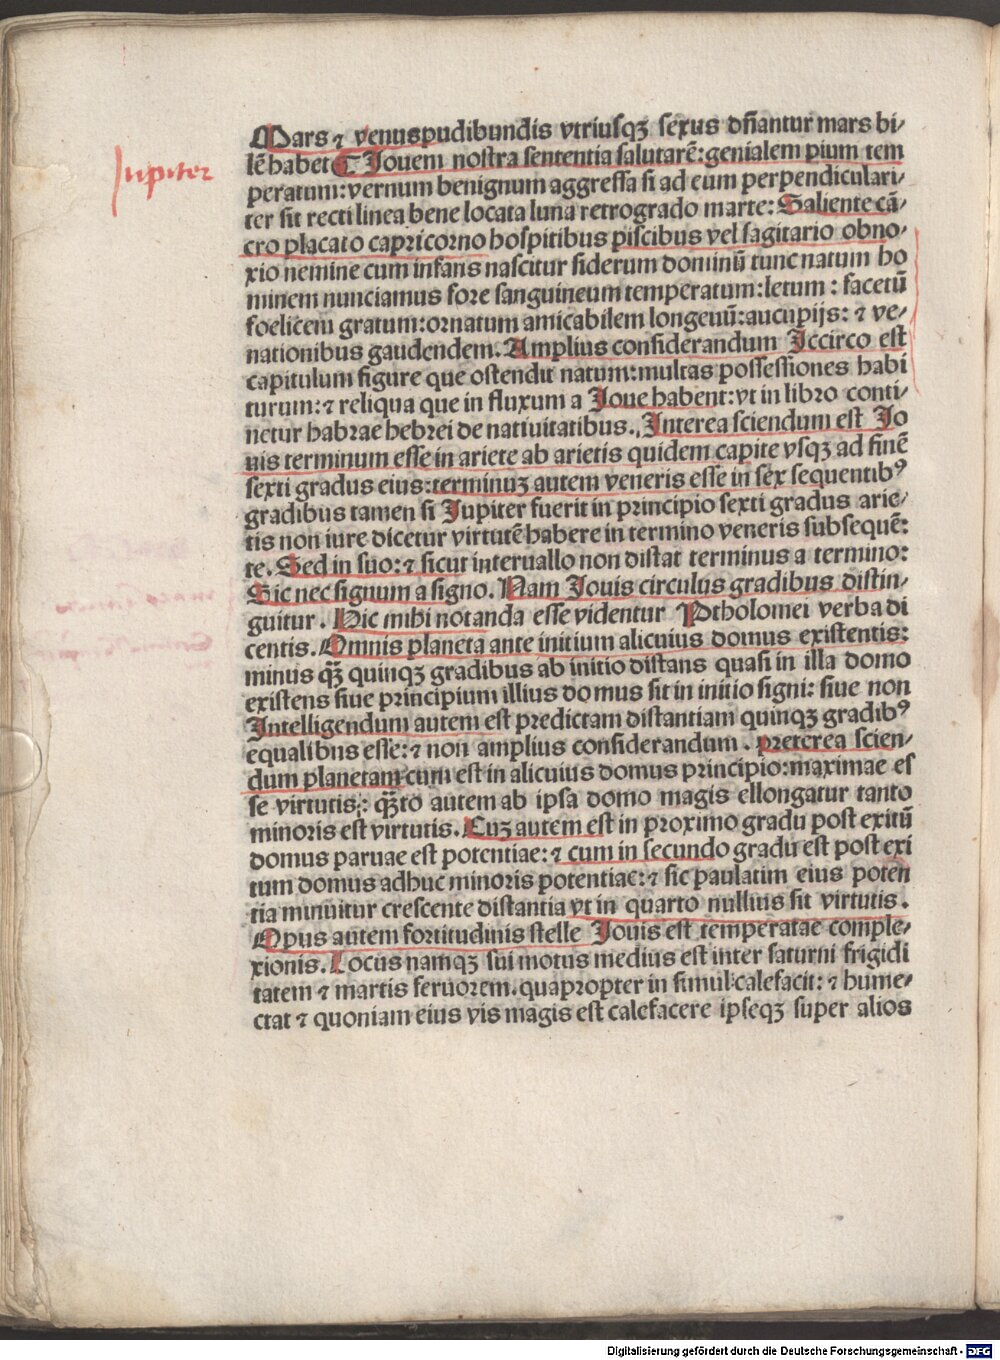 Jupiter
Mars ⁊ venus pudibundis vtriusqꝫ sexus dñantur mars bi⸗
lẽ habet ¶ Jouem nostra sententia salutarẽ: genialem pium tem
peratum: vernum benignum aggressa si ad eum perpendiculari⸗
ter sit recti linea bene locata luna retrogrado marte: Saliente cã⸗
cro placato capricorno hospitibus piscibus vel sagitario obno⸗
xio nemine cum infans nascitur siderum dominũ tunc natum ho
minem nunciamus fore sanguineum temperatum: letum : facetũ
foelicem gratum: ornatum amicabilem longeuũ: aucupijs: ⁊ ve⸗
nationibus gaudendem. Amplius considerandum Jccirco est
capitulum figure que ostendit natum: multas possessiones habi
turum: ⁊ reliqua que in fluxum a Joue habent: vt in libro conti⸗
netur habrae hebrei de natiuitatibus. Jnterea sciendum est Jo
uis terminum esse in ariete ab arietis quidem capite vsqꝫ ad finẽ
sexti gradus eius: terminuꝫ autem veneris esse in sex sequentibꝰ
gradibus tamen si Jupiter fuerit in principio sexti gradus arie⸗
tis non iure dicetur virtutẽ habere in termino veneris subsequẽ:
te. Sed in suo: ⁊ sicut interuallo non distat terminus a termino:
Sic nec signum a signo. Nam Jouis circulus gradibus distin⸗
guitur . Hic mihi notanda esse videntur Ptholomei verba di
centis. Omnis planeta ante initium alicuius domus existentis:
minus qꝫ̃ quinqꝫ gradibus ab initio distans quasi in illa domo
existens siue principium illius domus sit in initio signi: siue non
Jntelligendum autem est predictam distantiam quinqꝫ gradibꝰ
equalibus esse: ⁊ non amplius considerandum . preterea scien⸗
dum planetam cum est in alicuius domus principio: maximae es
se virtutis: qꝫ̃to autem ab ipsa domo magis ellongatur tanto
minoris est virtutis. Cuꝫ autem est in proximo gradu post exitũ
domus paruae est potentiae: ⁊ cum in secundo gradu est post exi
tum domus adhuc minoris potentiae: ⁊ sic paulatim eius poten
tia minuitur crescente distantia vt in quarto nullius sit virtutis .
Opus autem fortitudinis stelle Jouis est temperatae comple⸗
xionis. Locus namqꝫ sui motus medius est inter saturni frigidi
tatem ⁊ martis feruorem. quapropter in simul calefacit: ⁊ hume⸗
ctat ⁊ quoniam eius vis magis est calefacere ipseqꝫ super alios
Digitalisierung gefördert durch die Deutsche Forschungsgemeinschaft - DFG